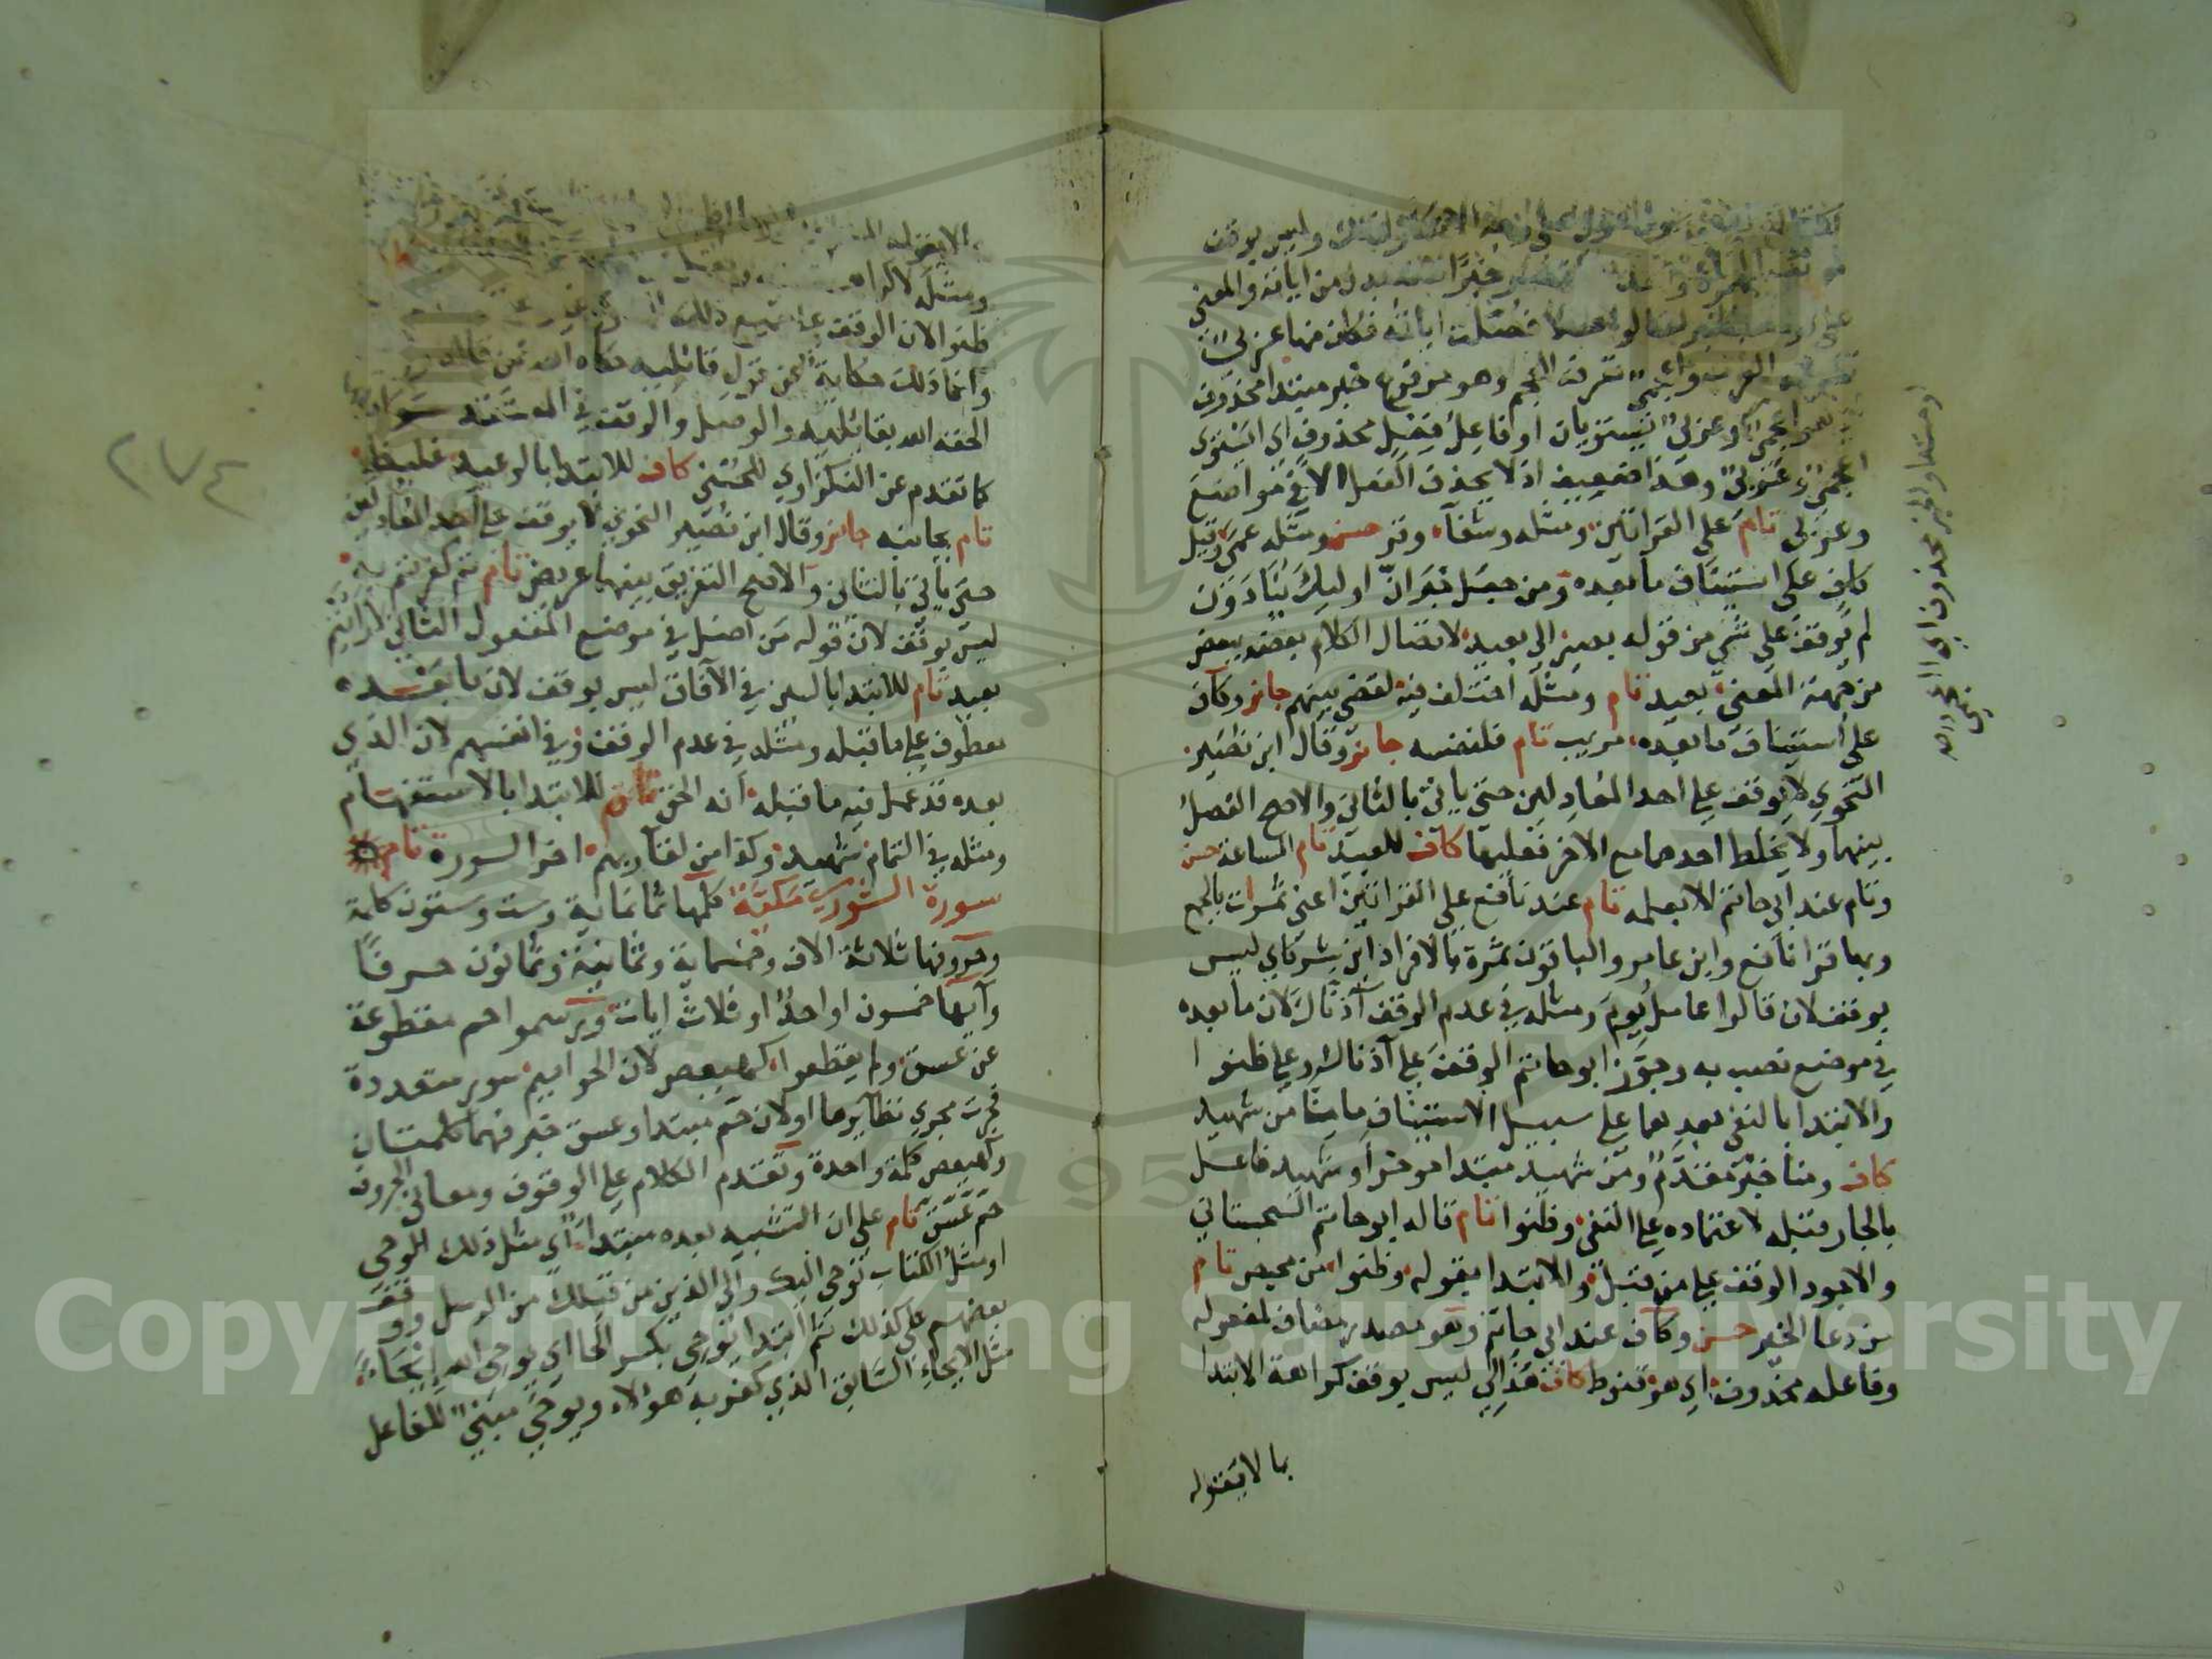 وليس بوقف
خبرا بدل من اياته والمعنى
فصلت اياته فكان منها عربي
وهو مرفوع خبر مبتدا محذوف
وعربي يستويان او فاعل فعل محذوف اي ايستوي
اعجمي وعربي وهذا ضعيف اذ لا يحذف الفعل الا في مواضع
وعربي تام على القراتين ومثله وشفاء وقر حسن ومثله عمى وقيل
كاف على استيناف ما بعده ومن جعل خبر ان اوليك ينادون
لم يوقف على شي من قوله بصير الى بعيد لاتصال الكلام بعضه ببعض
من جهة المعنى بعيد تام ومثله اختلف فيه لقضي بينهم جائز وكاف
على استيناف ما بعده مريب تام فلنفسه جائز وقال ابن نصير
النحوي لا يوقف على احد المعادلين حتى ياتي بالثاني والاصح الفصل
بينهما ولا يخلط احدهما مع الاخر فعليها كاف للعبيد تام الساعة حسن
وتام عند ابي حاتم الا بعلمه تام عند نافع على القراتين اعني ثمرات بالجمع
وبها قرا نافع وابن عامر والباقون ثمرة بالافراد اين شركاي ليس
بوقف لان قالوا عامل يوم ومثله في عدم الوقف آذناك لان ما بعده
في موضع نصب به وجوز ابو حاتم الوقف على آذناك وعلى ظنوا
والابتدا بالنفي بعدهما على سبيل الاستيناف ما منا من شهيد
كاف ومنا خبر مقدم ومن شهيد مبتدا موخر او شهيد فاعل
بالجار قبله لاعتماده على النفي وظنوا تام قاله ابو حاتم السجستاني
والاجود الوقف على من قبل والابتدا بقوله وظنوا من محيص تام
من دعا الخير حسن وكاف عند ابي حاتم وهو مصدر مضاف لمفعوله
وفاعله محذوف اي هو قنوط كاف هذا لي ليس بوقف كراهة الابتدا
بما لا يقوله
او مبتدا والخبر محذوف اي اعجمي
٢٧٤
ومثله لا كراهة
ظنوا لان الوقف على جميع ذلك
وانما ذلك حكاية عن قول قائليه حكاه الله عن قائله
الحقه الله بقائليه والوصل والوقف في المستقه سواء
كما تقدم عن النكزاوي للحسنى كاف للابتدا بالوعيد غليظ
تام بجانبه جائز وقال ابن نصير النحوي لا يوقف على احد المعادلين
حتى ياتي بالثاني والاصح التفريق بينهما عريض تام ثم كفرتم به
ليس بوقف لان قوله من اضل في موضع المفعول الثاني لارايتم
بعيد تام للابتدا بالسين في الآفاق ليس بوقف لان ما بعده
معطوف على ما قبله ومثله في عدم الوقف وفي انفسهم لان الذي
بعده قد عمل فيه ما قبله انه الحق تام للابتدا بالاستفهام
ومثله في التمام شهيد وكذا من لقاء ربهم اخر السورة تام
سورة الشورى مكية كلمها ثمانماية وست وستون كلمة
وحروفها ثلاثة الاف وخمسماية وثمانية وثمانون حرفا
وآيها خمسون او احد او ثلاث ايات ويرسموا حم مقطوعة
عن عسق ولم يقطعوا كهيعص لان الحواميم سور متعددة
فجرت مجرى نظايرها او لان حم مبتدا وعسق خبر فهما كلمتان
وكهيعص كلمة واحدة وتقدم الكلام على الوقوف ومعاني الحروف
حم عسق تام على ان التشبيه بعده مبتدا اي مثل ذلك الوحي
او مثل الكتاب نوحي اليك والى الذين من قبلك من الرسل ووقف
بعضهم على كذلك ثم ابتدا يوحي بكسر الحا اي يوحي الله ايحاء
مثل الايحاء السابق الذي كفر به هؤلاء ويوحي مبني للفاعل
Copyright © King Saud University
1957